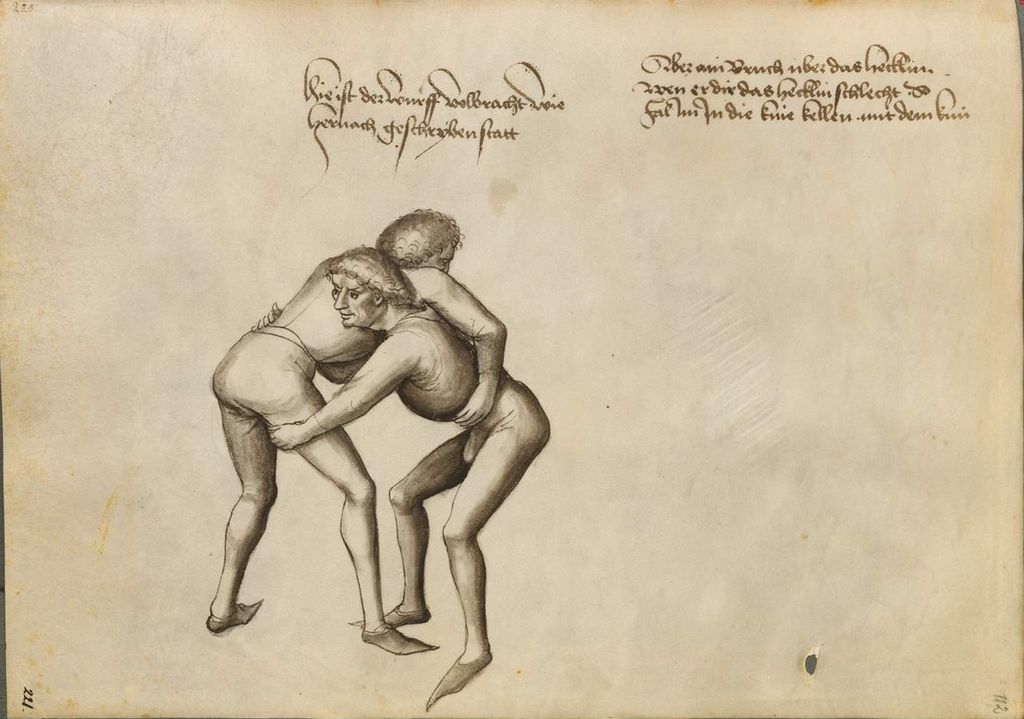 220
Hie ist der wurff volbracht wie
hernach geschryben statt
Aber ain Bruch uber das hecklin.
wen er dir das hecklin schlecht So
fal im In die knie kellen mit dem knü
221.
112